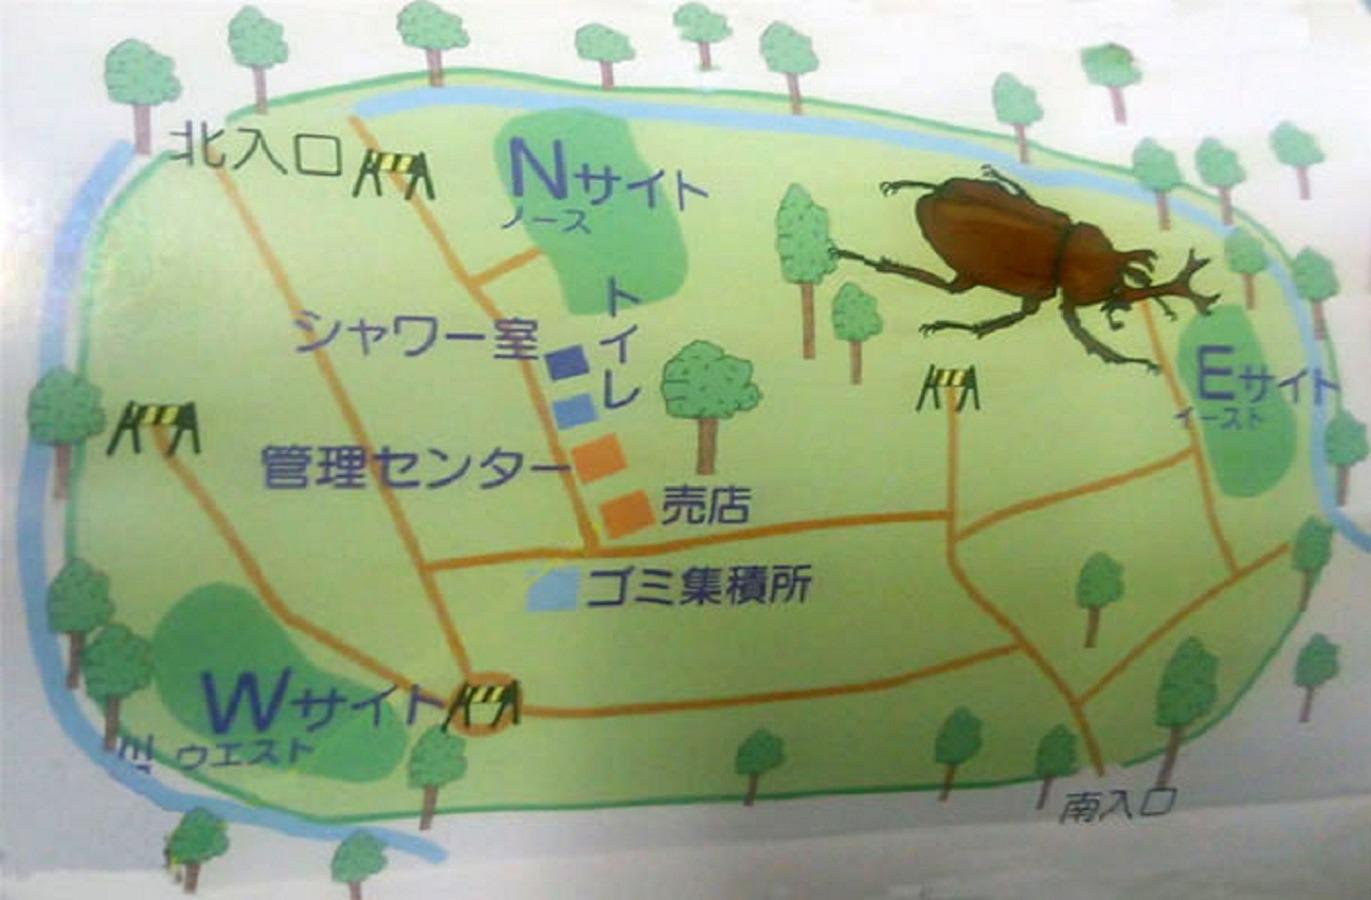 北入口
Nサイト
ノース
トイレ
シャワー室
Eサイト
イースト
管理センター
売店
ゴミ集積所
Wサイト
ウエスト
川
南入口